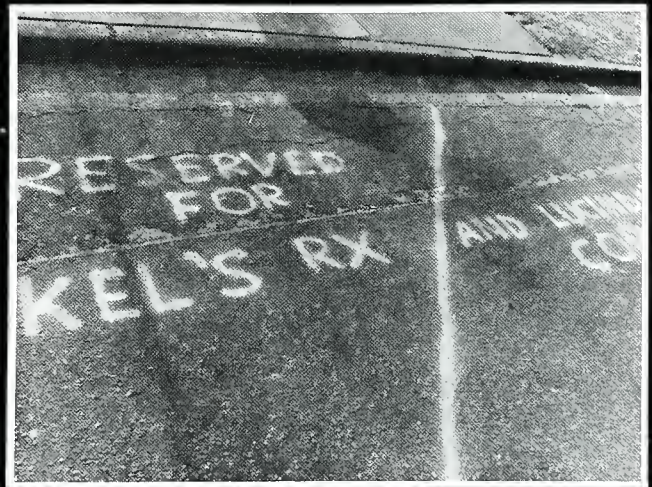 RESERVED
FOR
KEL'S RX
AND
CO